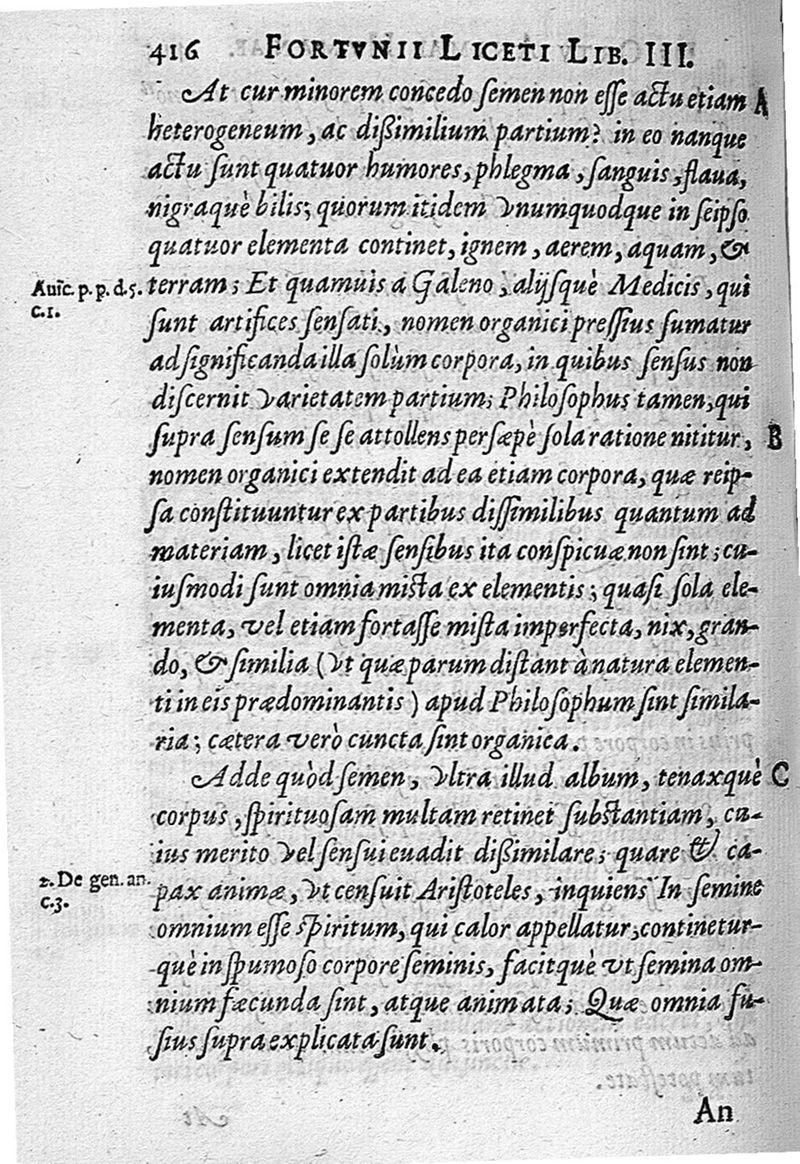 416 FORTVNII LICETI LIB. III.
At cur minorem concedo ſemen non eſſe actu etiam A
heterogeneum, ac dißimilium partium? in eo nanque
actu ſunt quatuor humores, phlegma, ſanguis, flaua,
nigraquè bilis; quorum itidem vnumquodque in ſeipſo
quatuor elementa continet, ignem, aerem, aquam, &
Auic̄. p. p. d. 5. terram; Et quamuis a Galeno, alijſquè Medicis, qui
c. 1. ſunt artifices ſenſati, nomen organici preſſius ſumatur
ad ſignificanda illa ſolùm corpora, in quibus ſenſus non
diſcernit varietatem partium; Philoſophus tamen, qui
ſupra ſenſum ſe ſe attollens perſæpè ſola ratione nititur, B
nomen organici extendit ad ea etiam corpora, quæ reip-
ſa conſtituuntur ex partibus diſſimilibus quantum ad
materiam, licet iſtæ ſenſibus ita conſpicuæ non ſint; cu-
iuſmodi ſunt omnia miſta ex elementis; quaſi ſola ele-
menta, vel etiam fortaſſe miſta imperfecta, nix, gran-
do, & ſimilia (vt quæ parum diſtant à natura elemen-
ti in eis prædominantis) apud Philoſophum ſint ſimila-
ria; cætera verò cuncta ſint organica.
Adde quòd ſemen, vltra illud album, tenaxquè C
corpus, ſpirituoſam multam retinet ſubſtantiam, cu-
ius merito vel ſenſui euadit dißimilare; quare & ca-
2. De gen. an. pax animæ, vt cenſuit Ariſtoteles, inquiens In ſemine
c. 3. omnium eſſe ſpiritum, qui calor appellatur; continetur-
què in ſpumoſo corpore ſeminis, facitquè vt ſemina om-
nium fæcunda ſint, atque animata; Quæ omnia fu-
ſius ſupra explicata ſunt.
An